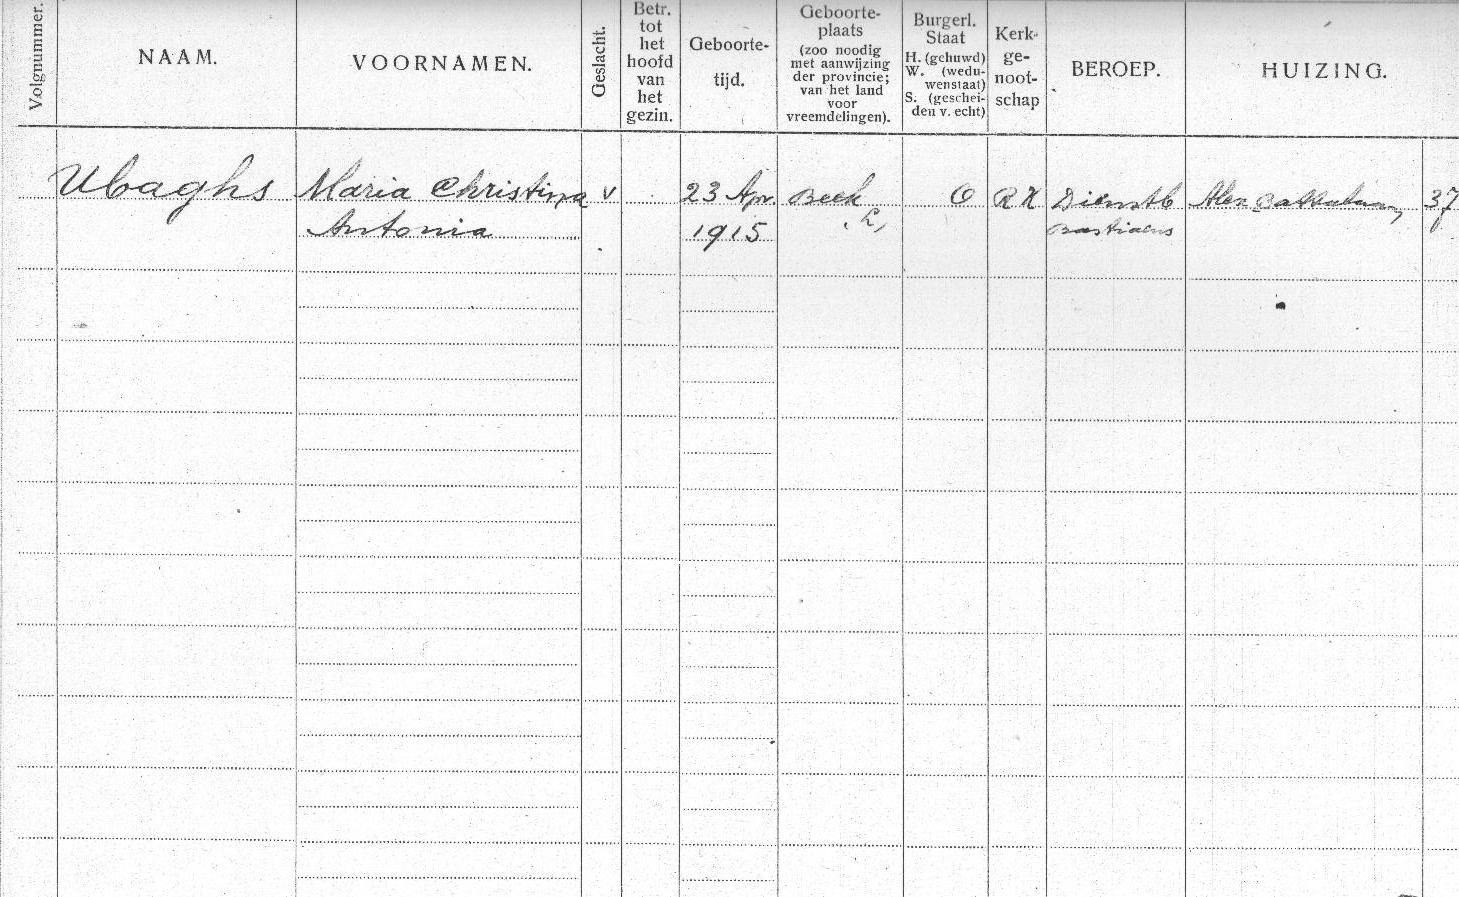 Volgnummer.
NAAM.
VOORNAMEN.
Geslacht.
Betr.
tot
het
hoofd
van
het
gezin.
Geboorte-
tijd.
Geboorte-
plaats
(zoo noodig
met aanwijzing
der provincie;
van het land
voor
vreemdelingen).
Burgerl.
Staat
H. (gehuwd)
W. (wedu-
wenstaat)
S. (geschei-
den v. echt)
Kerk-
ge-
noot-
schap
BEROEP.
HUIZING.
Ubaghs Maria Christina v 23 Apr. Beek O RK Dienstb Alex 37
Antonia 1915 L, Bastiaens